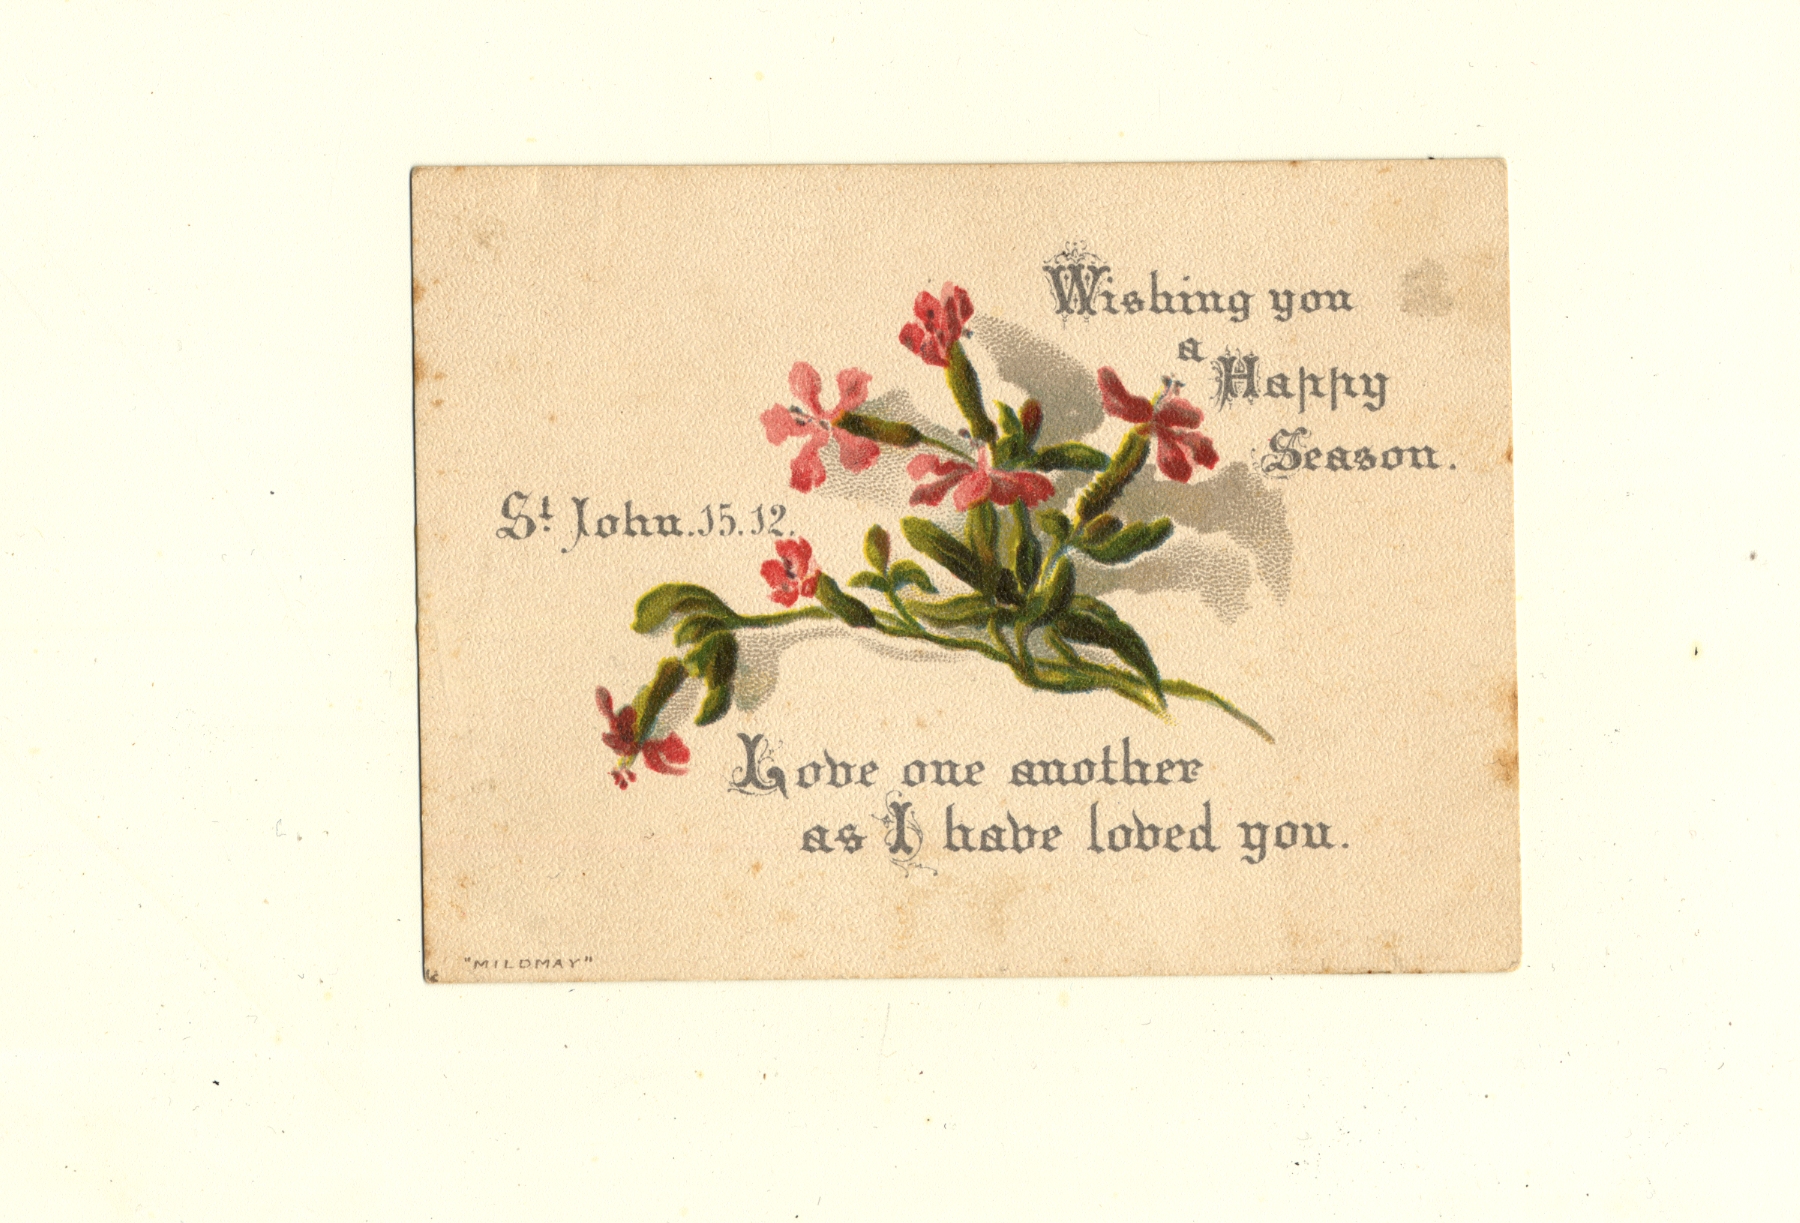 Wishing you
a Happy
Season.
St John.15.12.
Love one another
as I have loved you.
"MILDMAY"